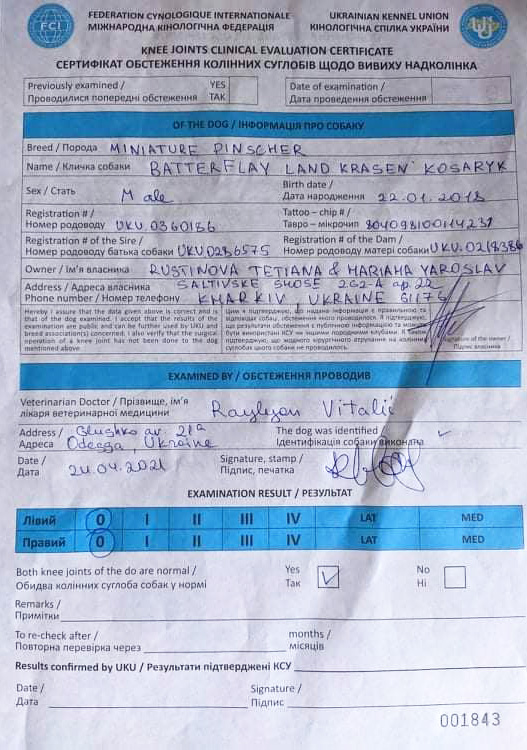 FCI
FEDERATION CYNOLOGIQUE INTERNATIONALE
МІЖНАРОДНА КІНОЛОГІЧНА ФЕДЕРАЦІЯ
UKRAINIAN KENNEL UNION
КІНОЛОГІЧНА СПІЛКА УКРАЇНИ
KNEE JOINTS CLINICAL EVALUATION CERTIFICATE
СЕРТИФІКАТ ОБСТЕЖЕННЯ КОЛІННИХ СУГЛОБІВ ЩОДО ВИВИХУ НАДКОЛІНКА
Previously examined / YES
Проводилися попередні обстеження ТАК
Date of examination /
Дата проведення обстеження
OF THE DOG / ІНФОРМАЦІЯ ПРО СОБАКУ
Breed / Порода MINIATURE PINSCHER
Name / Кличка собаки BATTERFLAY LAND KRASEN' KOSARYK
Sex / Стать Male
Birth date /
Дата народження 22.01.2018
Registration # /
Номер родоводу UKU 0360186
Tattoo – chip # /
Тавро – мікрочип
Registration # of the Sire /
Номер родоводу батька собаки UKU 0286575
Registration # of the Dam /
Номер родоводу матері собаки UKU.0218386
Owner / Ім'я власника RUSTINOVA TETIANA & MARIAHA YAROSLAV
Address / Адреса власника SALTIVSKE SHOSE 262-A ap.22
Phone number / Номер телефону KHARKIV, UKRAINE 61176
Hereby I assure that the data given above is correct and is
that of the dog examined. I accept that the results of the
examination are public and can be further used by UKU and
breed association(s) concerned. I also verify that the surgical
operation of a knee joint has not been done to the dog
mentioned above.
Цим я підтверджую, що надана інформація є правильною та
відповідає собаці, обстеження якого проводилося. Я підтверджую,
що результати обстеження є публічною інформацією та можуть
бути використані КСУ чи іншими породними клубами. Я також
підтверджую, що жодного хірургічного втручання на колінних
суглобах цього собаки не проводилось.
Signature of the owner /
Підпис власника
EXAMINED BY / ОБСТЕЖЕННЯ ПРОВОДИВ
Veterinarian Doctor / Прізвище, ім'я
лікаря ветеринарної медицини Raylyan Vitalii
Address / Glushko av. 21a
Адреса Odessa, Ukraine
The dog was identified /
Ідентифікація собаки виконана
Date /
Дата 24.04.2021
Signature, stamp /
Підпис, печатка
EXAMINATION RESULT / РЕЗУЛЬТАТ
Лівий 0 I II III IV LAT MED
Правий 0 I II III IV LAT MED
Both knee joints of the do are normal / Yes No
Обидва колінних суглоба собак у нормі Так Ні
Remarks /
Примітки
To re-check after / months /
Повторна перевірка через місяців
Results confirmed by UKU / Результати підтверджені КСУ
Date /
Дата
Signature /
Підпис
001843